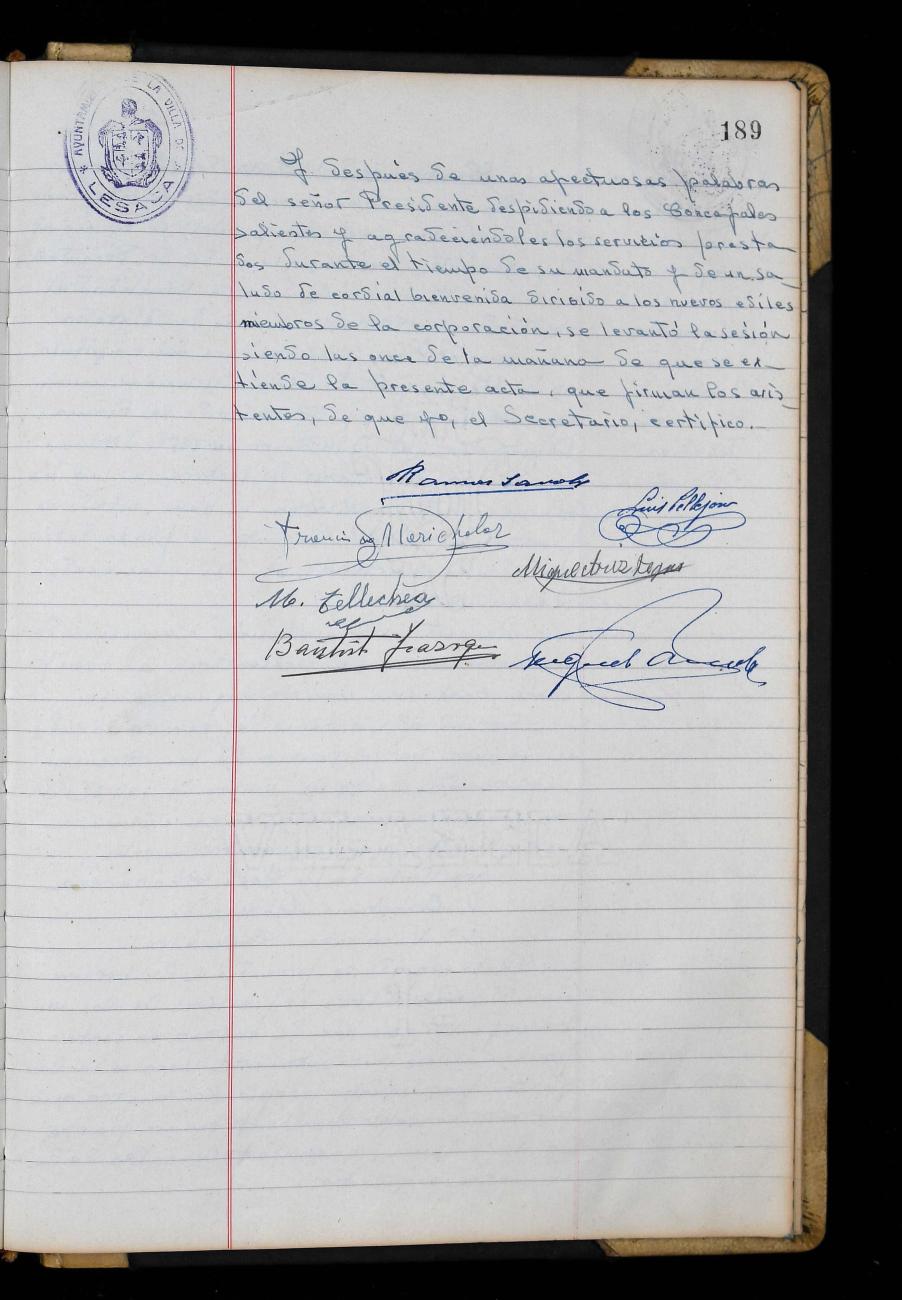 189
AYUNTAMIENTO DE LA VILLA DE
LESACA
Y después de unas afectuosas palabras
del señor Presidente despidiendo a los Concejales
salientes y agradeciéndoles los servicios presta-
dos durante el tiempo de su mandato y de un sa-
ludo de cordial bienvenida dirigido a los nuevos ediles
miembros de la corporación, se levantó la sesión
siendo las once de la mañana de que se ex-
tiende la presente acta, que firman los asis-
tentes, de que yo, el Secretario, certifico.-
Luis Pellejero
Francisco Marichalar
Miguel
M. Tellechea
Bautista
Miguel